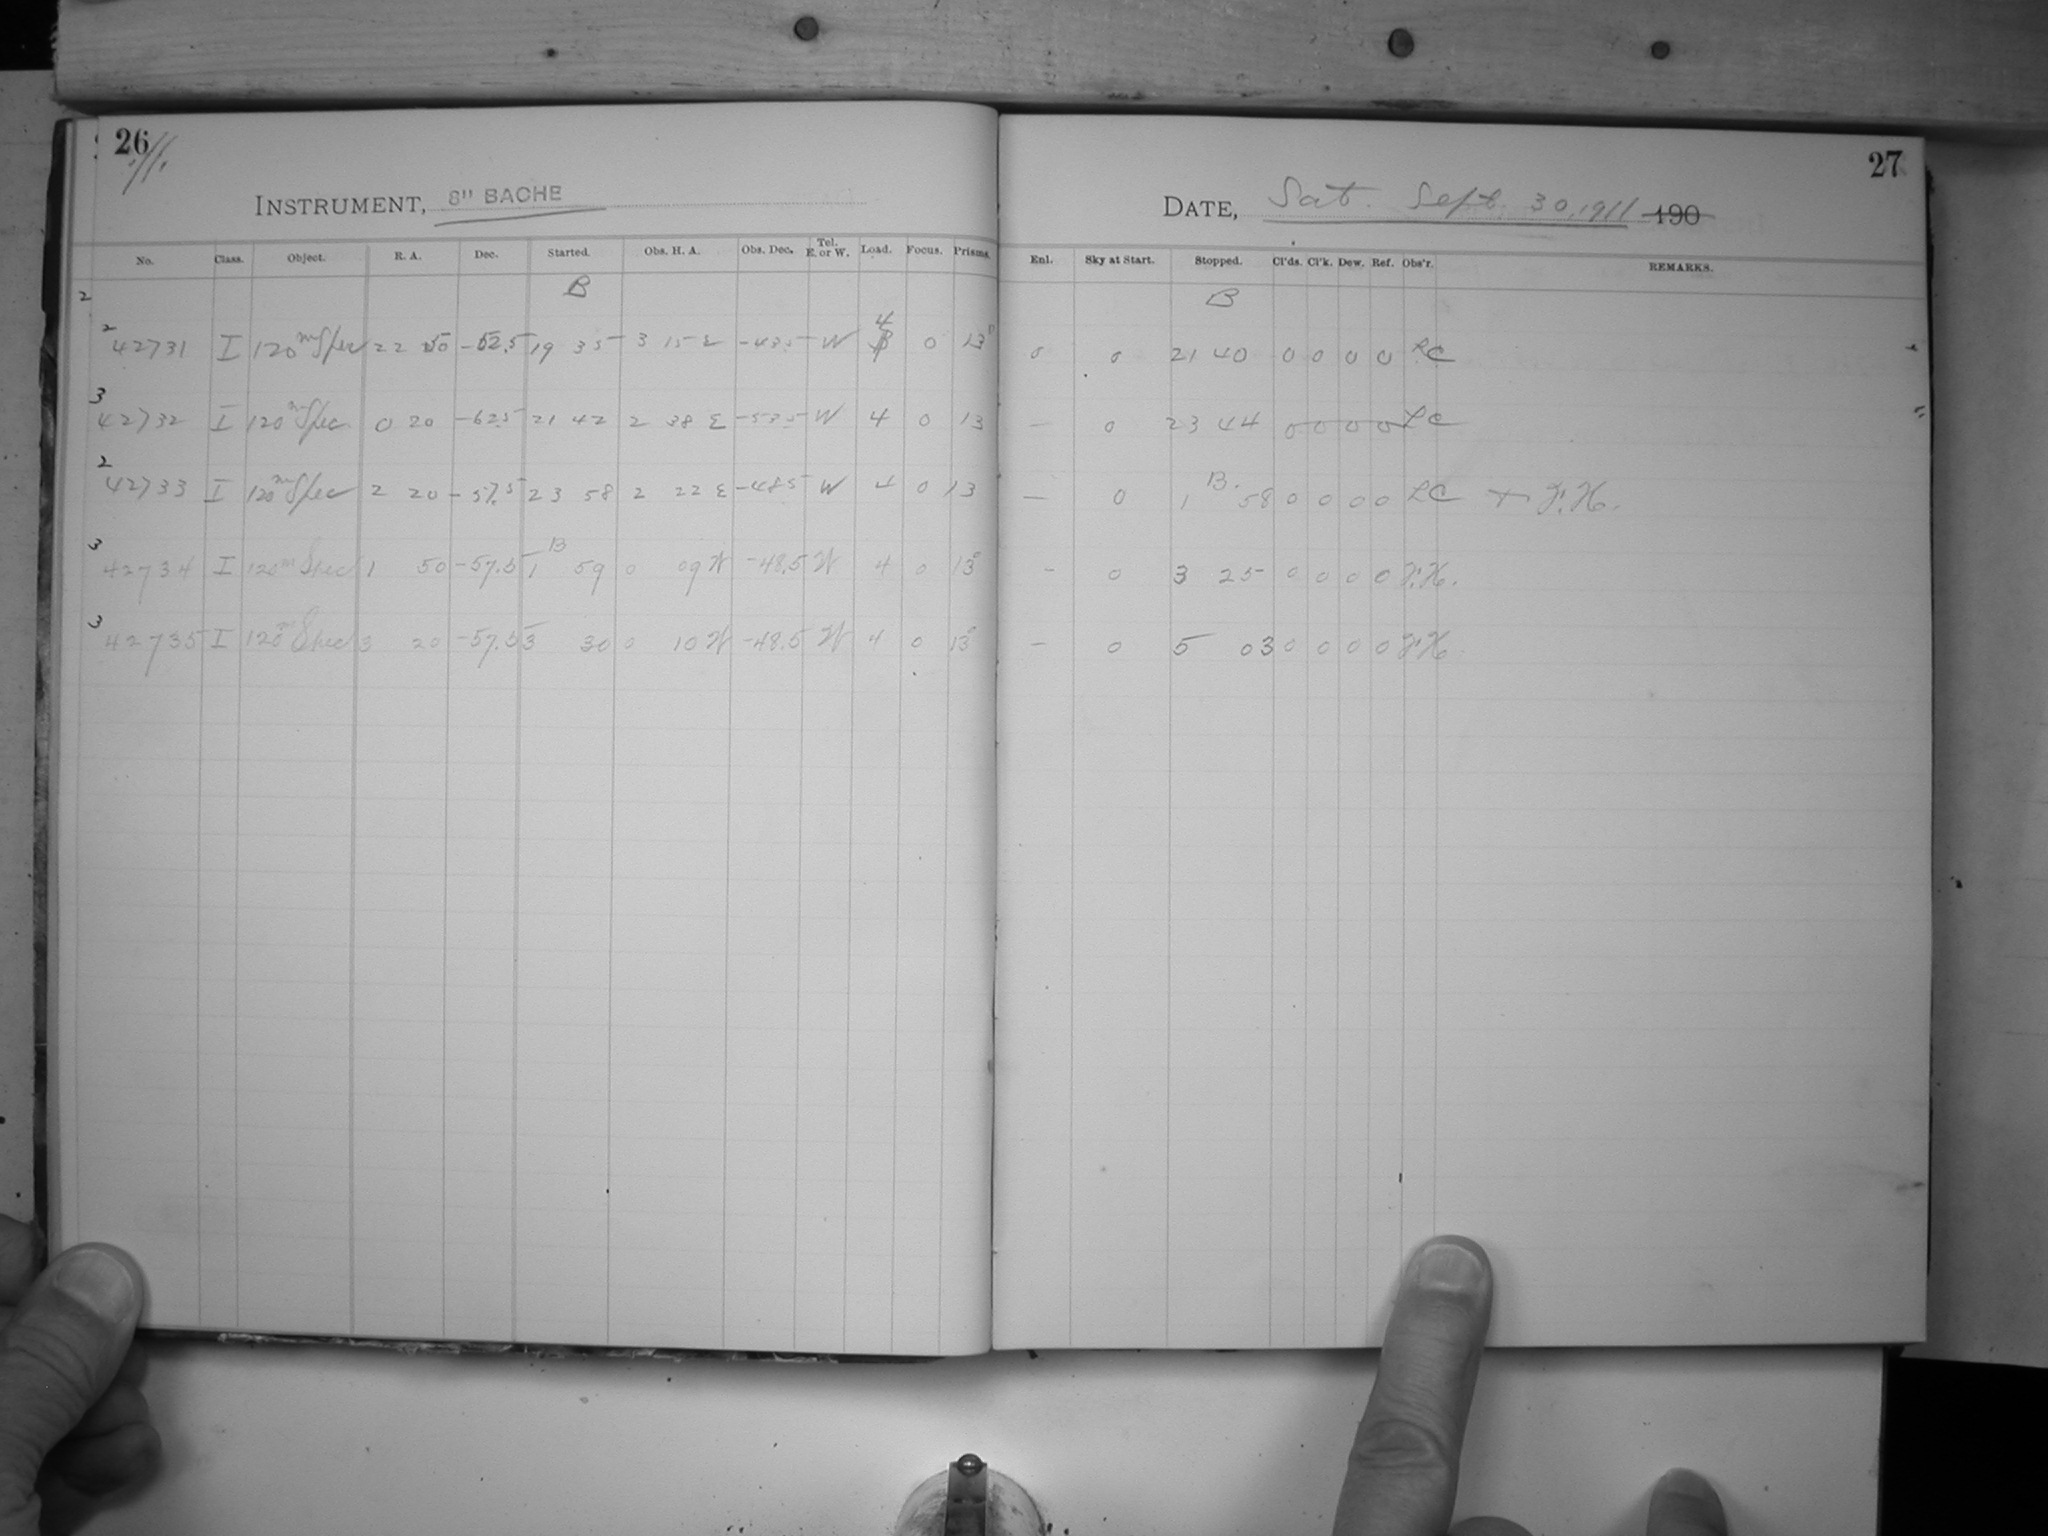 26
INSTRUMENT, 8" BACHE
No. Class. Object. R. A. Dec. Started. Obs. H. A. Obs. Dec. Tel. E. or W. Load. Focus. Prisms.
B
2
2 42731 I 120m Spec 22 50 -52.5 19 35 3 15 E -43.5 W 4 0 13
3 42732 I 120m Spec. 0 20 -62.5 21 42 2 38 E -53.5 W 4 0 13
2 42733 I 120m Spec 2 20 -57.5 23 58 2 22 E -48.5 W 4 0 13
3 42734 I 120m Spec 1 50 -57.5 B 1 59 0 09 W -48.5 W 4 0 13
3 42735 I 120m Spec 3 20 -57.5 3 30 0 10 W -48.5 W 4 0 13
27
DATE, Sat. Sept. 30, 1911 190
Enl. Sky at Start. Stopped. Cl'ds. Cl'k. Dew. Ref. Obs'r. REMARKS.
B
0 0 21 40 0 0 0 0 LC
— 0 23 44 0 0 0 0 LC
— 0 1 B. 58 0 0 0 0 LC + F.H.
- 0 3 25 0 0 0 0 F.H.
- 0 5 03 0 0 0 0 F.H.